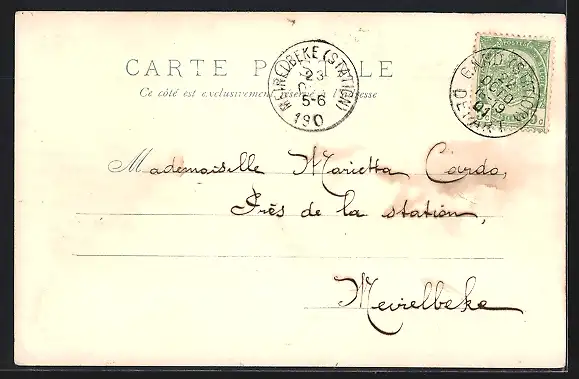 CARTE POSTALE
Ce côté est exclusivement réservé à l'adresse
MEIRELBEKE (STATION)
23
5-6
190
GAND (STATION)
22
OCTO
19
01
DEPART
Mademoiselle Marietta Cardo,
Près de la station,
Meirelbeke